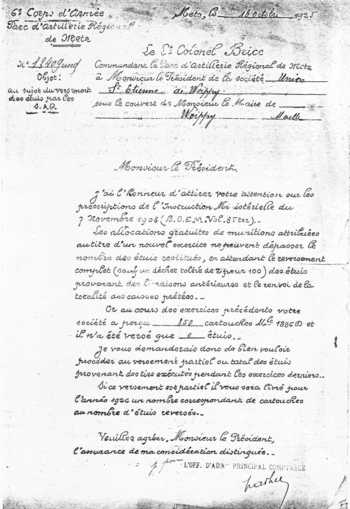 6e Corps d'Armée
Parc d'Artillerie Régional
de Metz
Metz, le 15 Octobre 1925
Le Lt Colonel Bricc
Commandant le Parc d'Artillerie Régional de Metz
Objet:
à Monsieur le Président de la société Union
au sujet du versement
St Etienne de Woippy
des étuis par les
S.A.G.
sous le couvert de Monsieur le Maire de
Woippy Moselle
Monsieur le Président.
J'ai l'Honneur d'attirer votre attention sur les
prescriptions de l'Instruction Ministérielle du
7 Novembre 1908 (B.O.E.M. Vol.
Les allocations gratuites de munitions attribuées
au titre d'un nouvel exercice ne peuvent dépasser le
nombre des étuis restitués, en attendant le versement
complet (sauf un déchet toléré de 2 pour 100) des étuis
provenant des livraisons antérieures et le renvoi de la
totalité des caisses prêtées..
Or au cours des exercices précédents votre
société a perçu 850 cartouches Mle 1886 et
il n'a été versé que étuis..
Je vous demanderais donc de bien vouloir
procéder au versement partiel ou total des étuis
provenant des tirs exécutés pendant les exercices derniers..
Si ce versement est partiel il vous sera livré pour
l'année 1926 un nombre correspondant de cartouches
au nombre d'étuis reversés..
Veuillez agréer, Monsieur le Président,
l'assurance de ma considération distinguée..
L'OFF. D'ADM. PRINCIPAL COMPTABLE